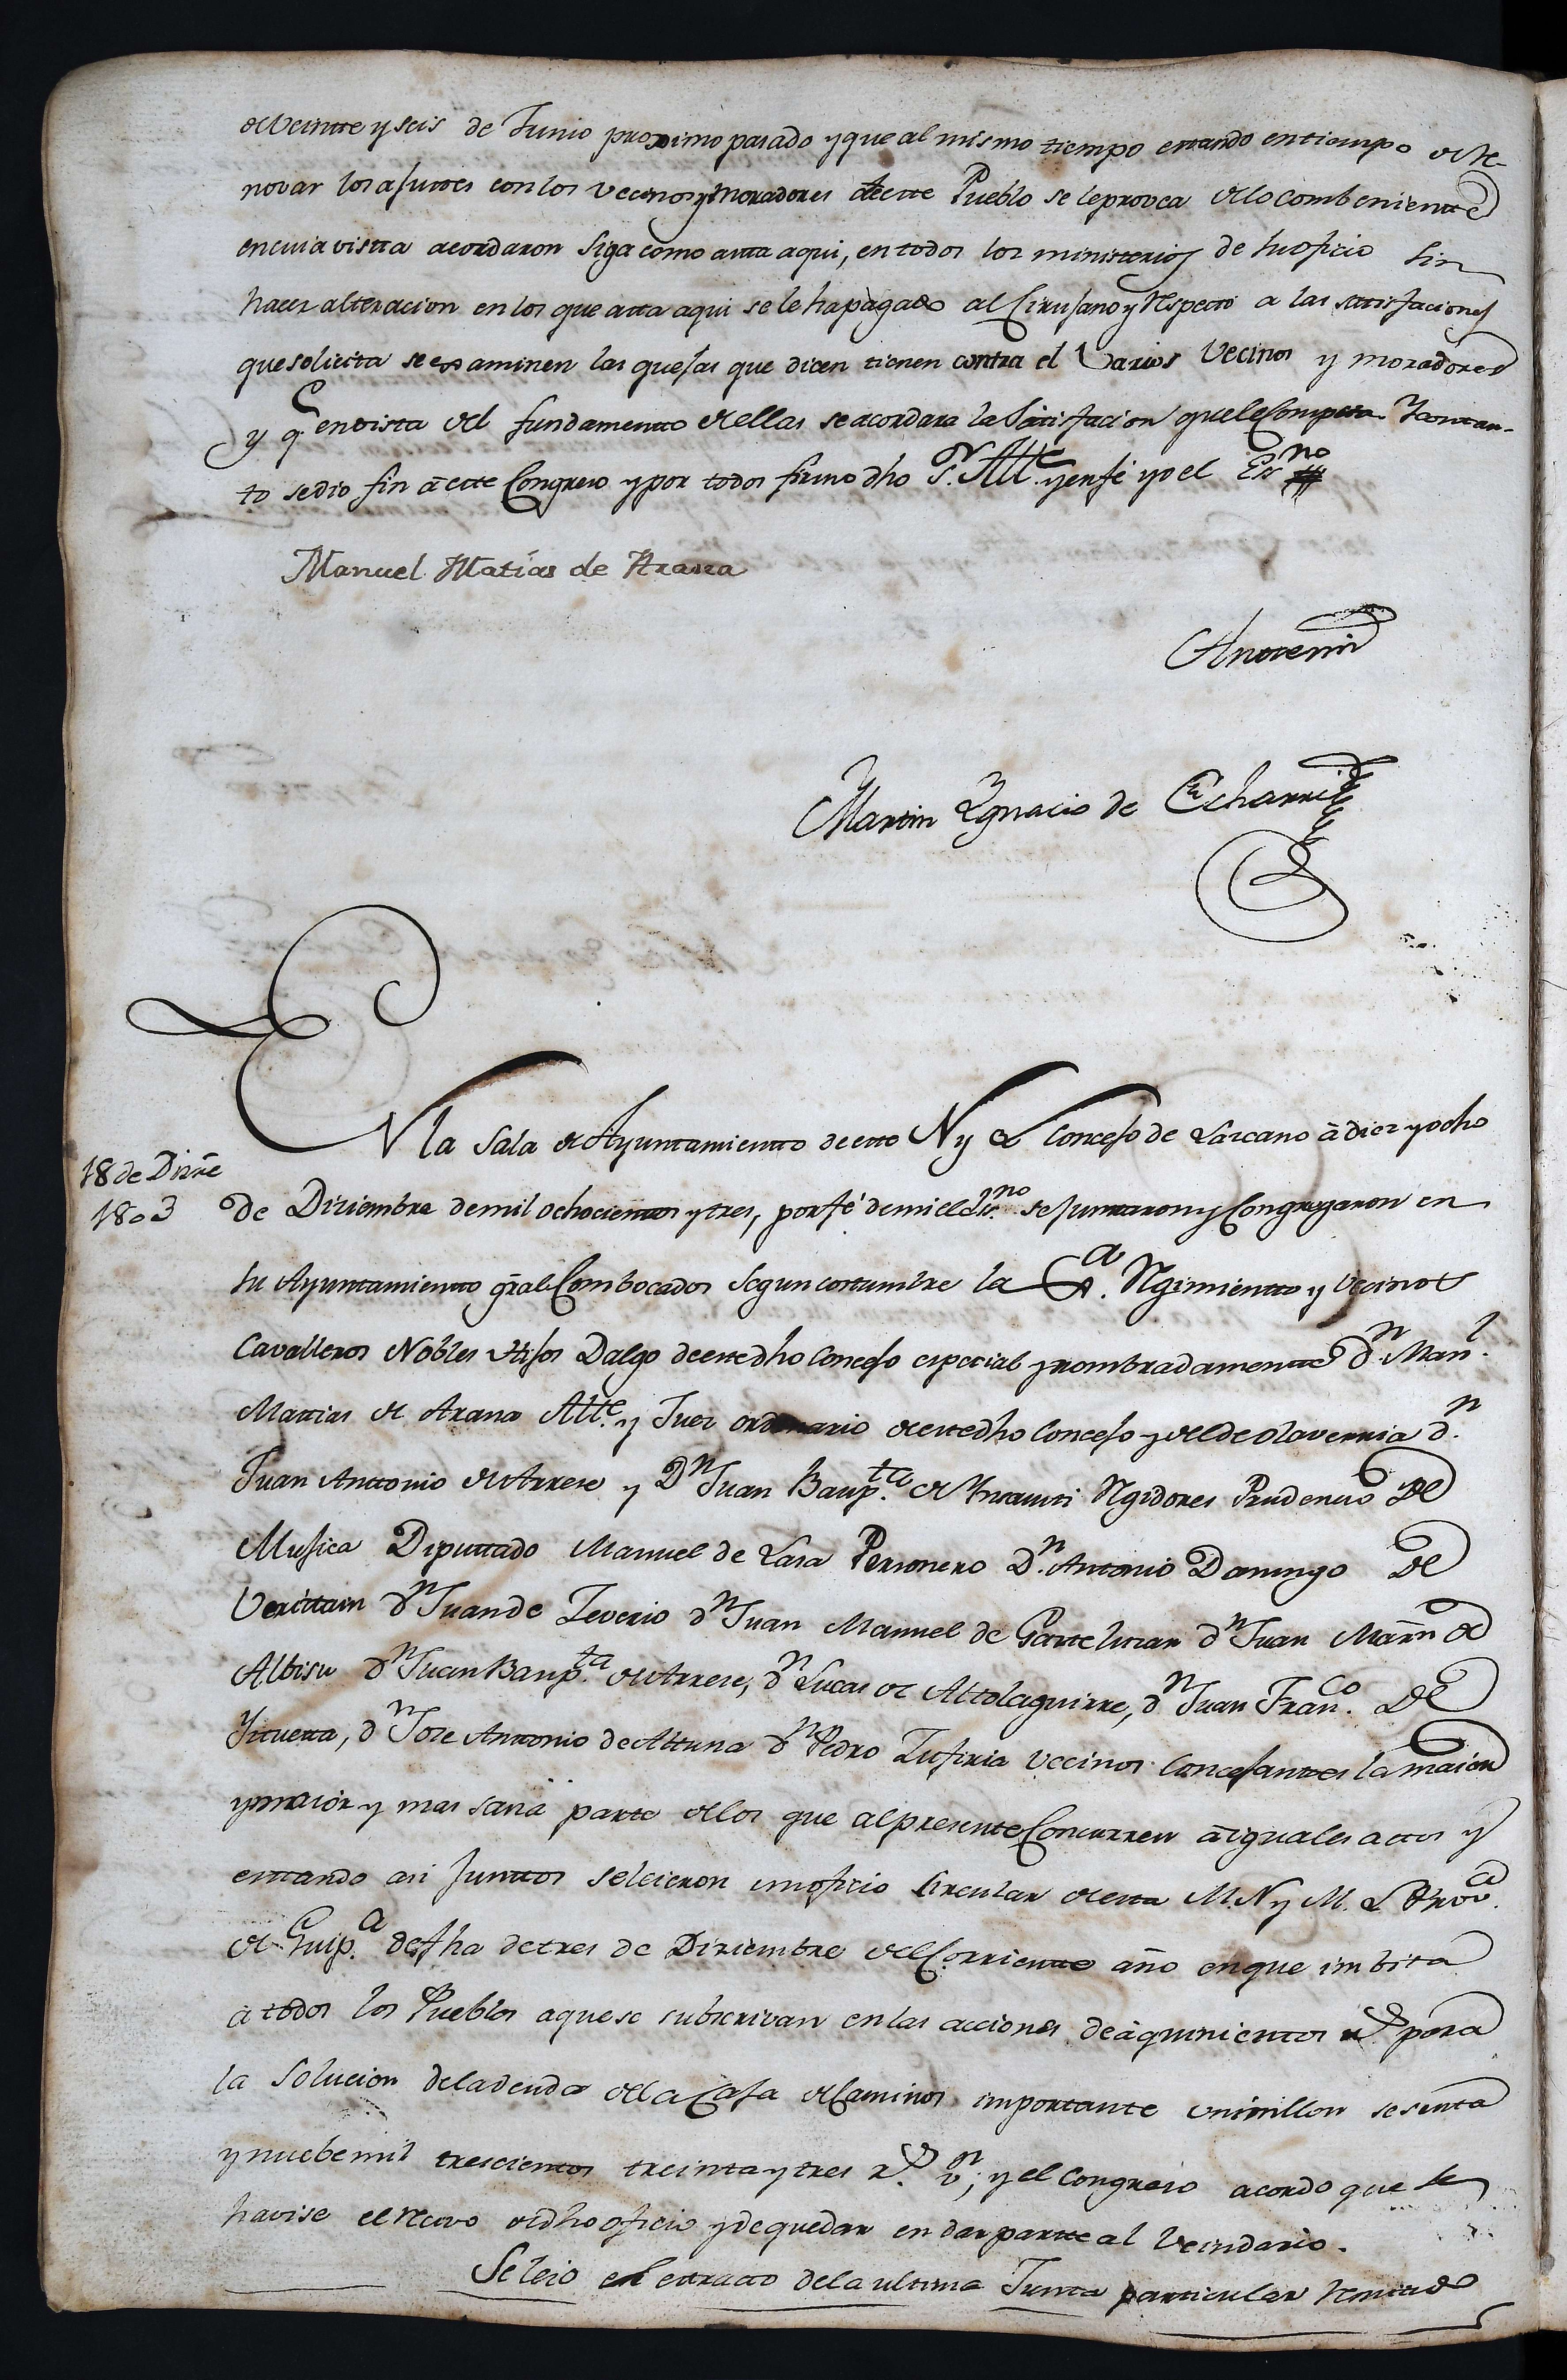 de Veintte y seis de Junio proximo pasado y que al mismo tiempo estando en tiempo de Re-
novar los asuttos con los vecinos y Moradores de este Pueblo se le provea de lo combeniente
en cuia vistta acordaron siga como asta aqui, en todos los ministerios de su oficio sin
hacer alteracion en los que asta aqui se le ha pagado al Cirujano y Respecto a las satisfaciones
que solicita se examinen las quejas que dicen tienen contra el Varios Vecinos y moradores
y q.e en vista del fundamento de ellas se acordara la Satisfacion que le Competa Y en tan-
to se dio fin à este Congreso y por todos firmo dho S.r Alle. y en fé yo el Ess.no
Manuel Matias de Arana
Ante mi
Martin Ygnacio de Echarri
EN la Sala de Ayuntamientto de este N y L Concejo de Lazcano à diez y ocho
18 de Dizre
1803
de Diziembre de mil ochocientos y tres, por fé de mi el Ess.no se junttaron y Congregaron en
su Ayuntamientto gral Combocados segun costumbre la Rª. Rgimientto y Vecinos
Cavalleros Nobles Hijos Dalgo de este dho Concejo especial y nombradamentte d.n Man.l
Mattias de Arana Alle. y Juez ordinario de este dho Concejo y del de Olaverria d.n
Juan Anttonio de Arrese y D.n Juan Baup.ta de Ynsausti Rgidores Prudencio de
Mujica Diputtado Manuel de Lasa Personero D.n Antonio Domingo de
d.n Juan de Zeverio d.n Juan Manuel de Garteluzar d.n Juan Marn de
Albisu d.n Juan Baup.ta de Arrese, d.n Lucas de Altolaguirre, d.n Juan Fran.co De
Yttuetta, d.n Jose Anttonio de Altuna d.n Pedro Zufiria Vecinos Concejantes la maior
y maior y mas sana parte de los que al presente Concurren à iguales actos y
esttando asi Junttos se leieron un oficio Circular de esta M. N y M. L Prov.ª
de Guip.ª de fha de tres de Diziembre del Corriente año en que imbita
à todos los Pueblos a que se subscrivan en las acciones de à quinientos R.s para
la Solucion de la deuda de la Casa de Caminos importante un millon sesenta
y nuebe mil trescientos treinta y tres R.s v.n, y el Congreso acordo que se
havise el recivo de dho oficio y de quedar en dar partte al Vecindario.
Se leio el extracto de la ultima Junta particular